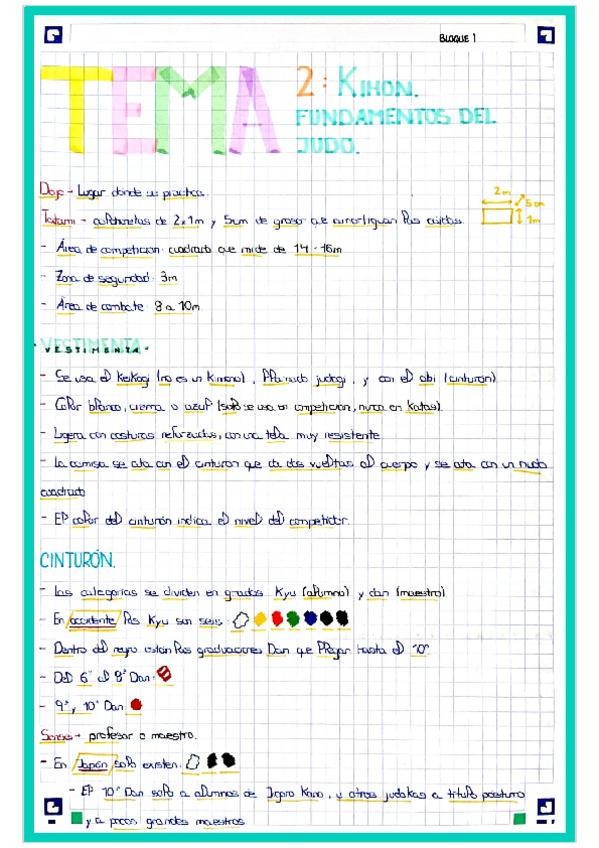 BLOQUE 1
TEMA 2: KIHON.
FUNDAMENTOS DEL
JUDO.
Dojo → Lugar donde se practica.
2m
5cm
1m
Tatami → colchonetas de 2x1m y 5cm de grosor que amortiguan las caídas.
- Área de competición: cuadrado que mide de 14-16m
- Zona de seguridad: 3m
- Área de combate: 8 a 10m
· VESTIMENTA ·
- Se usa el Keikogi (no es un Kimono), llamado judogi, y con el obi (cinturón)
- Color blanco, crema o azul (solo se usa en competición, nunca en Katas).
- Ligera con costuras reforzadas, con una tela muy resistente
- La camisa se ata con el cinturón que da dos vueltas al cuerpo y se ata con un nudo
cuadrado
- El color del cinturón indica el nivel del competidor.
CINTURÓN.
- Las categorías se dividen en grados Kyu (alumno) y dan (maestro)
- En occidente los Kyu son seis:
- Dentro del negro están las graduaciones Dan que llegan hasta el 10º
- Del 6º al 8º Dan:
- 9º, 10º Dan:
Sensei → profesor o maestro.
- En Japón solo existen:
- El 10º Dan solo a alumnos de Jigoro Kano, y otros judokas a título póstumo
y a pocos grandes maestros